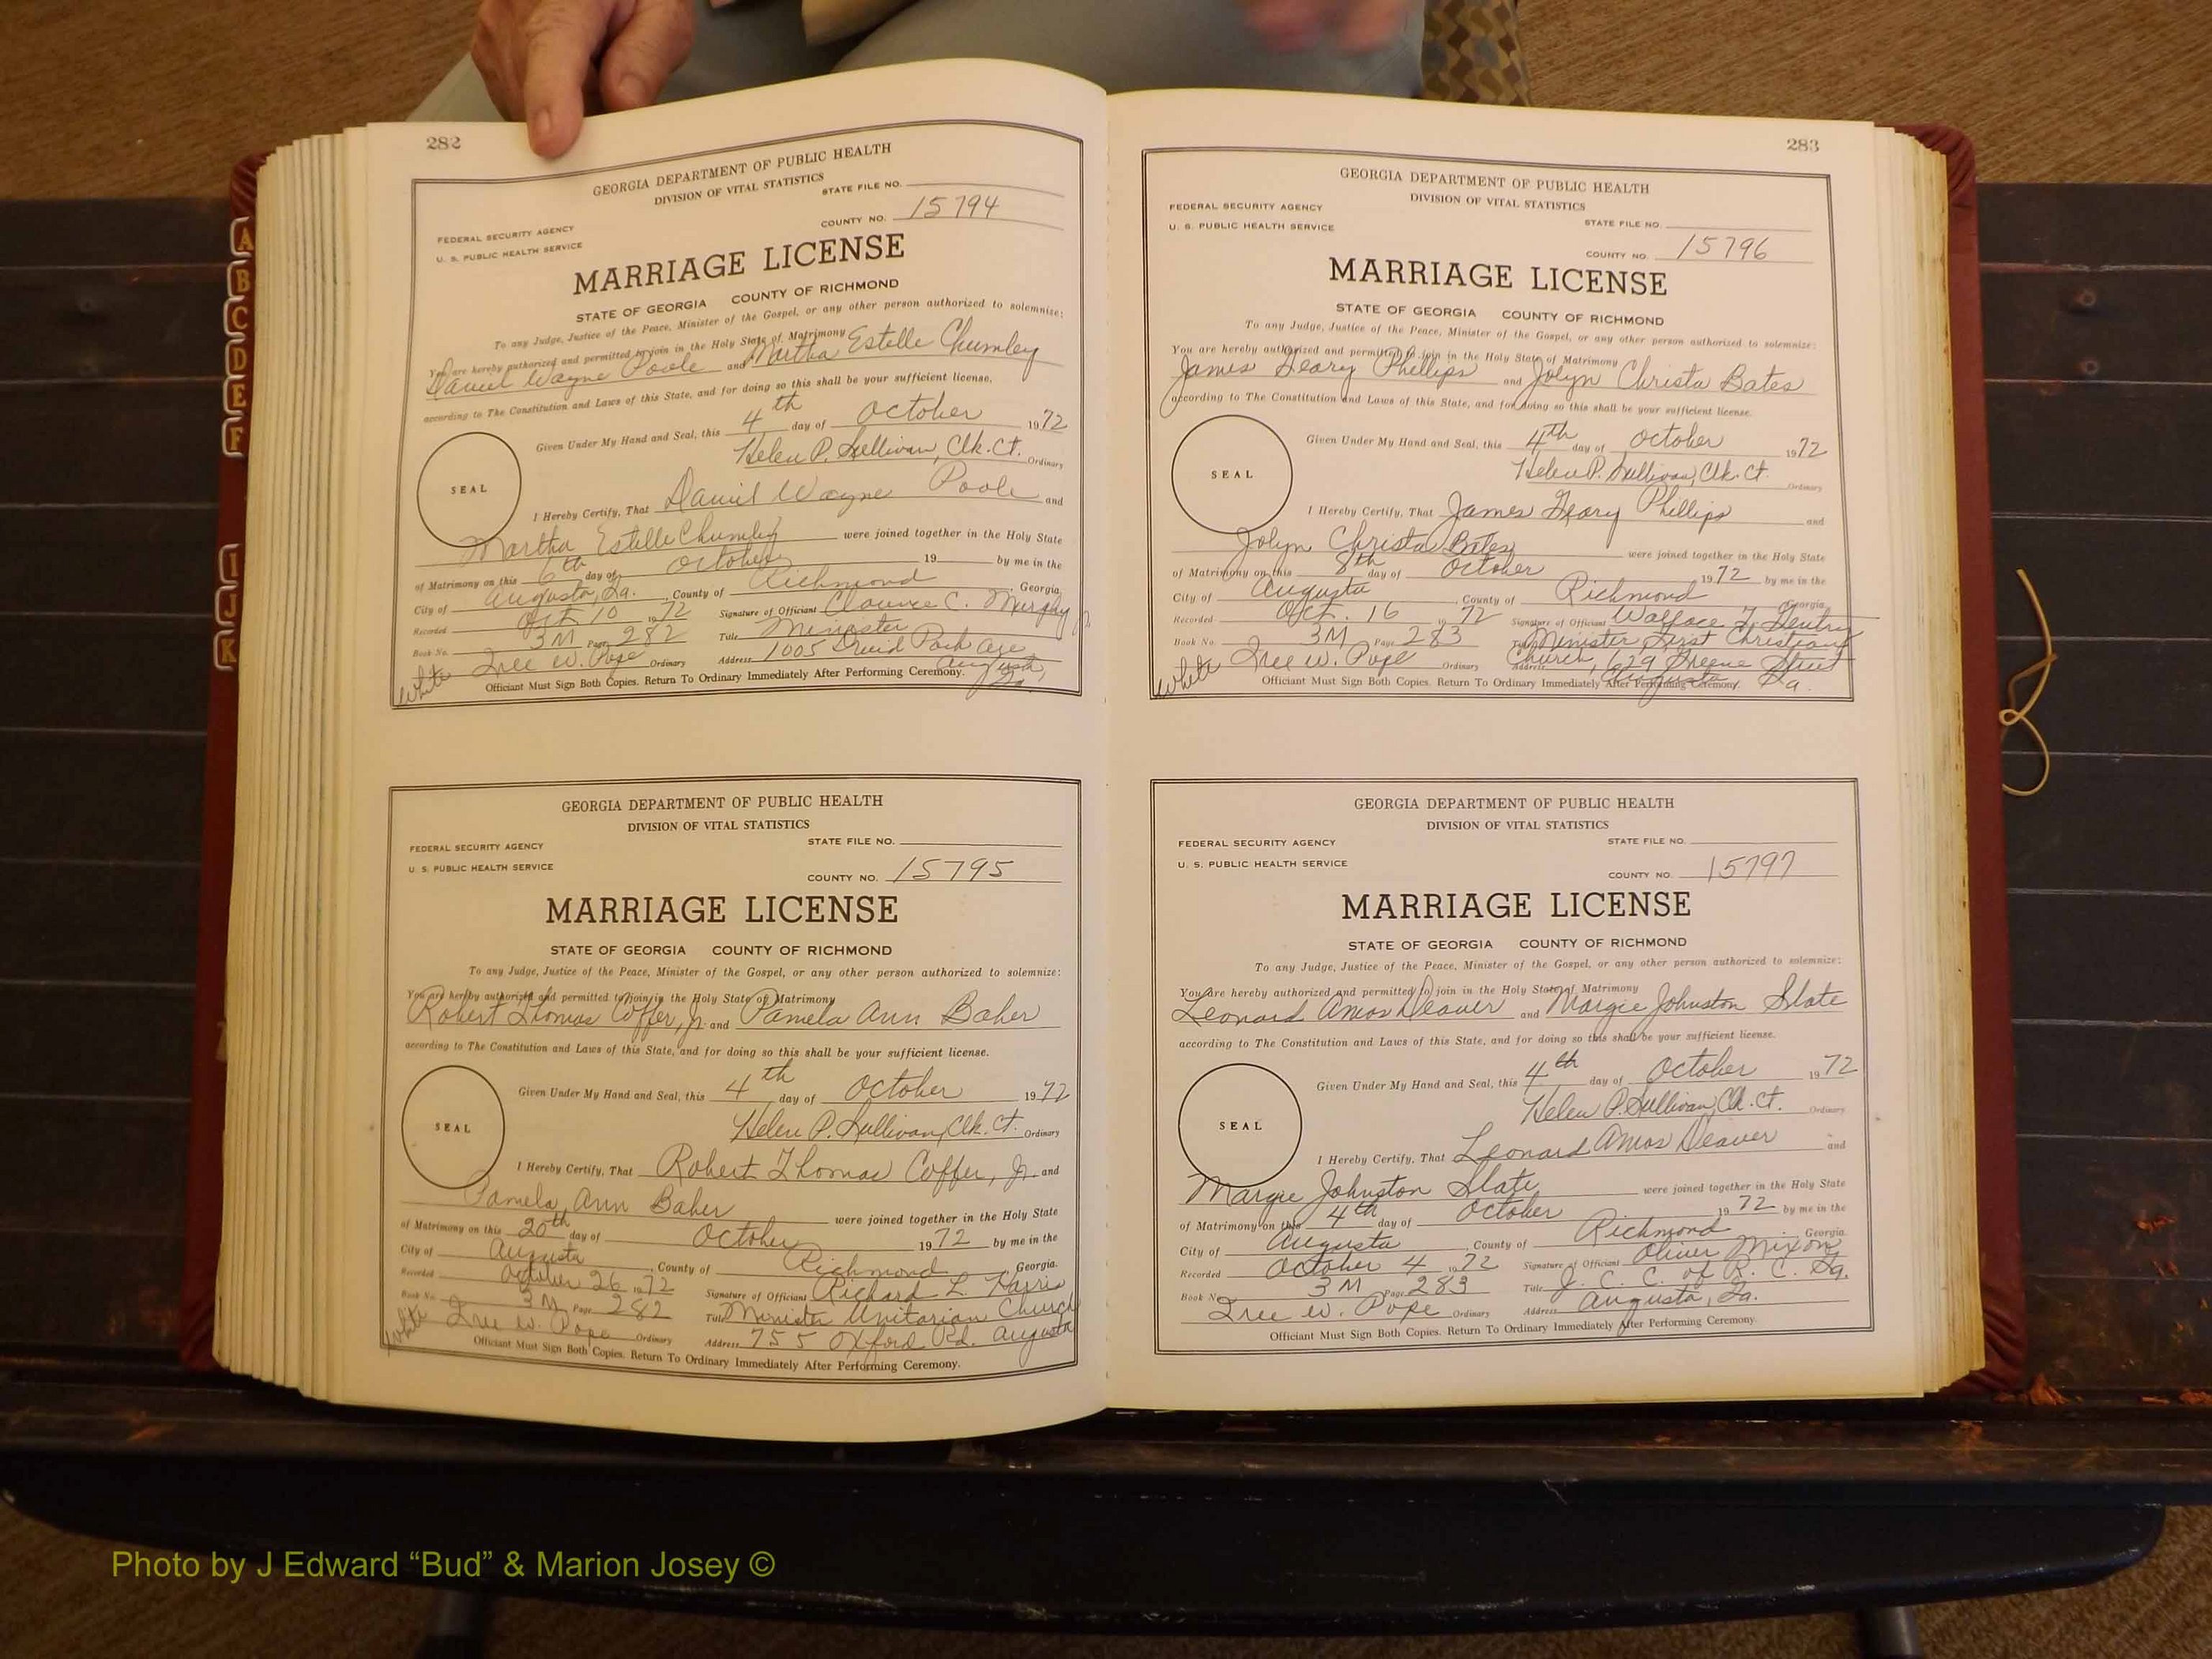 282
GEORGIA DEPARTMENT OF PUBLIC HEALTH
DIVISION OF VITAL STATISTICS
STATE FILE NO.
COUNTY NO. 15794
FEDERAL SECURITY AGENCY
U. S. PUBLIC HEALTH SERVICE
MARRIAGE LICENSE
STATE OF GEORGIA COUNTY OF RICHMOND
To any Judge, Justice of the Peace, Minister of the Gospel, or any other person authorized to solemnize:
You are hereby authorized and permitted to join in the Holy State of Matrimony
Daniel Wayne Poole and Martha Estelle Chumley
according to The Constitution and Laws of this State, and for doing so this shall be your sufficient license.
Given Under My Hand and Seal, this 4th day of October 1972
Helen P. Sullivan, Clk. Ct. Ordinary
SEAL
I Hereby Certify, That Daniel Wayne Poole and
Martha Estelle Chumley were joined together in the Holy State
of Matrimony on this 6th day of October 19 by me in the
City of Augusta, Ga. , County of Richmond , Georgia
Recorded Oct 10 1972 Signature of Officiant Clarence C. Murphy Jr.
Book No. 3M Page 282 Title Minister
White Iree W. Pope Ordinary Address 1005 Druid Park Ave
Augusta, Ga.
Officiant Must Sign Both Copies. Return To Ordinary Immediately After Performing Ceremony.
GEORGIA DEPARTMENT OF PUBLIC HEALTH
DIVISION OF VITAL STATISTICS
FEDERAL SECURITY AGENCY STATE FILE NO.
U. S. PUBLIC HEALTH SERVICE
COUNTY NO. 15795
MARRIAGE LICENSE
STATE OF GEORGIA COUNTY OF RICHMOND
To any Judge, Justice of the Peace, Minister of the Gospel, or any other person authorized to solemnize:
You are hereby authorized and permitted to join in the Holy State of Matrimony
Robert Thomas Coffer, Jr. and Pamela Ann Baher
according to The Constitution and Laws of this State, and for doing so this shall be your sufficient license.
Given Under My Hand and Seal, this 4th day of October 1972
Helen P. Sullivan, Clk. Ct. Ordinary
SEAL
I Hereby Certify, That Robert Thomas Coffer, Jr. and
Pamela Ann Baher were joined together in the Holy State
of Matrimony on this 20th day of October 1972 by me in the
City of Augusta , County of Richmond , Georgia.
Recorded October 26 1972 Signature of Officiant Richard L. Harris
Book No. 3M Page 282 Title Minister Unitarian Church
White Iree W. Pope Ordinary Address 755 Oxford Rd. Augusta
Officiant Must Sign Both Copies. Return To Ordinary Immediately After Performing Ceremony.
283
GEORGIA DEPARTMENT OF PUBLIC HEALTH
DIVISION OF VITAL STATISTICS
FEDERAL SECURITY AGENCY
U. S. PUBLIC HEALTH SERVICE STATE FILE NO.
COUNTY NO. 15796
MARRIAGE LICENSE
STATE OF GEORGIA COUNTY OF RICHMOND
To any Judge, Justice of the Peace, Minister of the Gospel, or any other person authorized to solemnize:
You are hereby authorized and permitted to join in the Holy State of Matrimony
James Geary Phillips and Jolyn Christa Bates
according to The Constitution and Laws of this State, and for doing so this shall be your sufficient license.
Given Under My Hand and Seal, this 4th day of October 1972
Helen P. Sullivan, Clk. Ct. Ordinary
SEAL
I Hereby Certify, That James Geary Phillips and
Jolyn Christa Bates were joined together in the Holy State
of Matrimony on this 8th day of October 1972 by me in the
City of Augusta , County of Richmond , Georgia
Recorded Oct. 16 1972 Signature of Officiant Wallace
Book No. 3M Page 283 Title Minister First Christian
White Iree W. Pope Ordinary Address Church, 629 Greene Street
Augusta, Ga.
Officiant Must Sign Both Copies. Return To Ordinary Immediately After Performing Ceremony.
GEORGIA DEPARTMENT OF PUBLIC HEALTH
DIVISION OF VITAL STATISTICS
FEDERAL SECURITY AGENCY STATE FILE NO.
U. S. PUBLIC HEALTH SERVICE
COUNTY NO. 15797
MARRIAGE LICENSE
STATE OF GEORGIA COUNTY OF RICHMOND
To any Judge, Justice of the Peace, Minister of the Gospel, or any other person authorized to solemnize:
You are hereby authorized and permitted to join in the Holy State of Matrimony
Leonard Amos Deaver and Margie Johnston Slate
according to The Constitution and Laws of this State, and for doing so this shall be your sufficient license.
Given Under My Hand and Seal, this 4th day of October 1972
Helen P. Sullivan, Clk. Ct. Ordinary
SEAL
I Hereby Certify, That Leonard Amos Deaver and
Margie Johnston Slate were joined together in the Holy State
of Matrimony on this 4th day of October 1972 by me in the
City of Augusta , County of Richmond , Georgia.
Recorded October 4 1972 Signature of Officiant Oliver Mixon
Book No. 3M Page 283 Title J. C. C. of R. C. Ga.
Iree W. Pope Ordinary Address Augusta, Ga.
Officiant Must Sign Both Copies. Return To Ordinary Immediately After Performing Ceremony.
A
B
C
D
E
F
I
J
K
Photo by J Edward “Bud” & Marion Josey ©